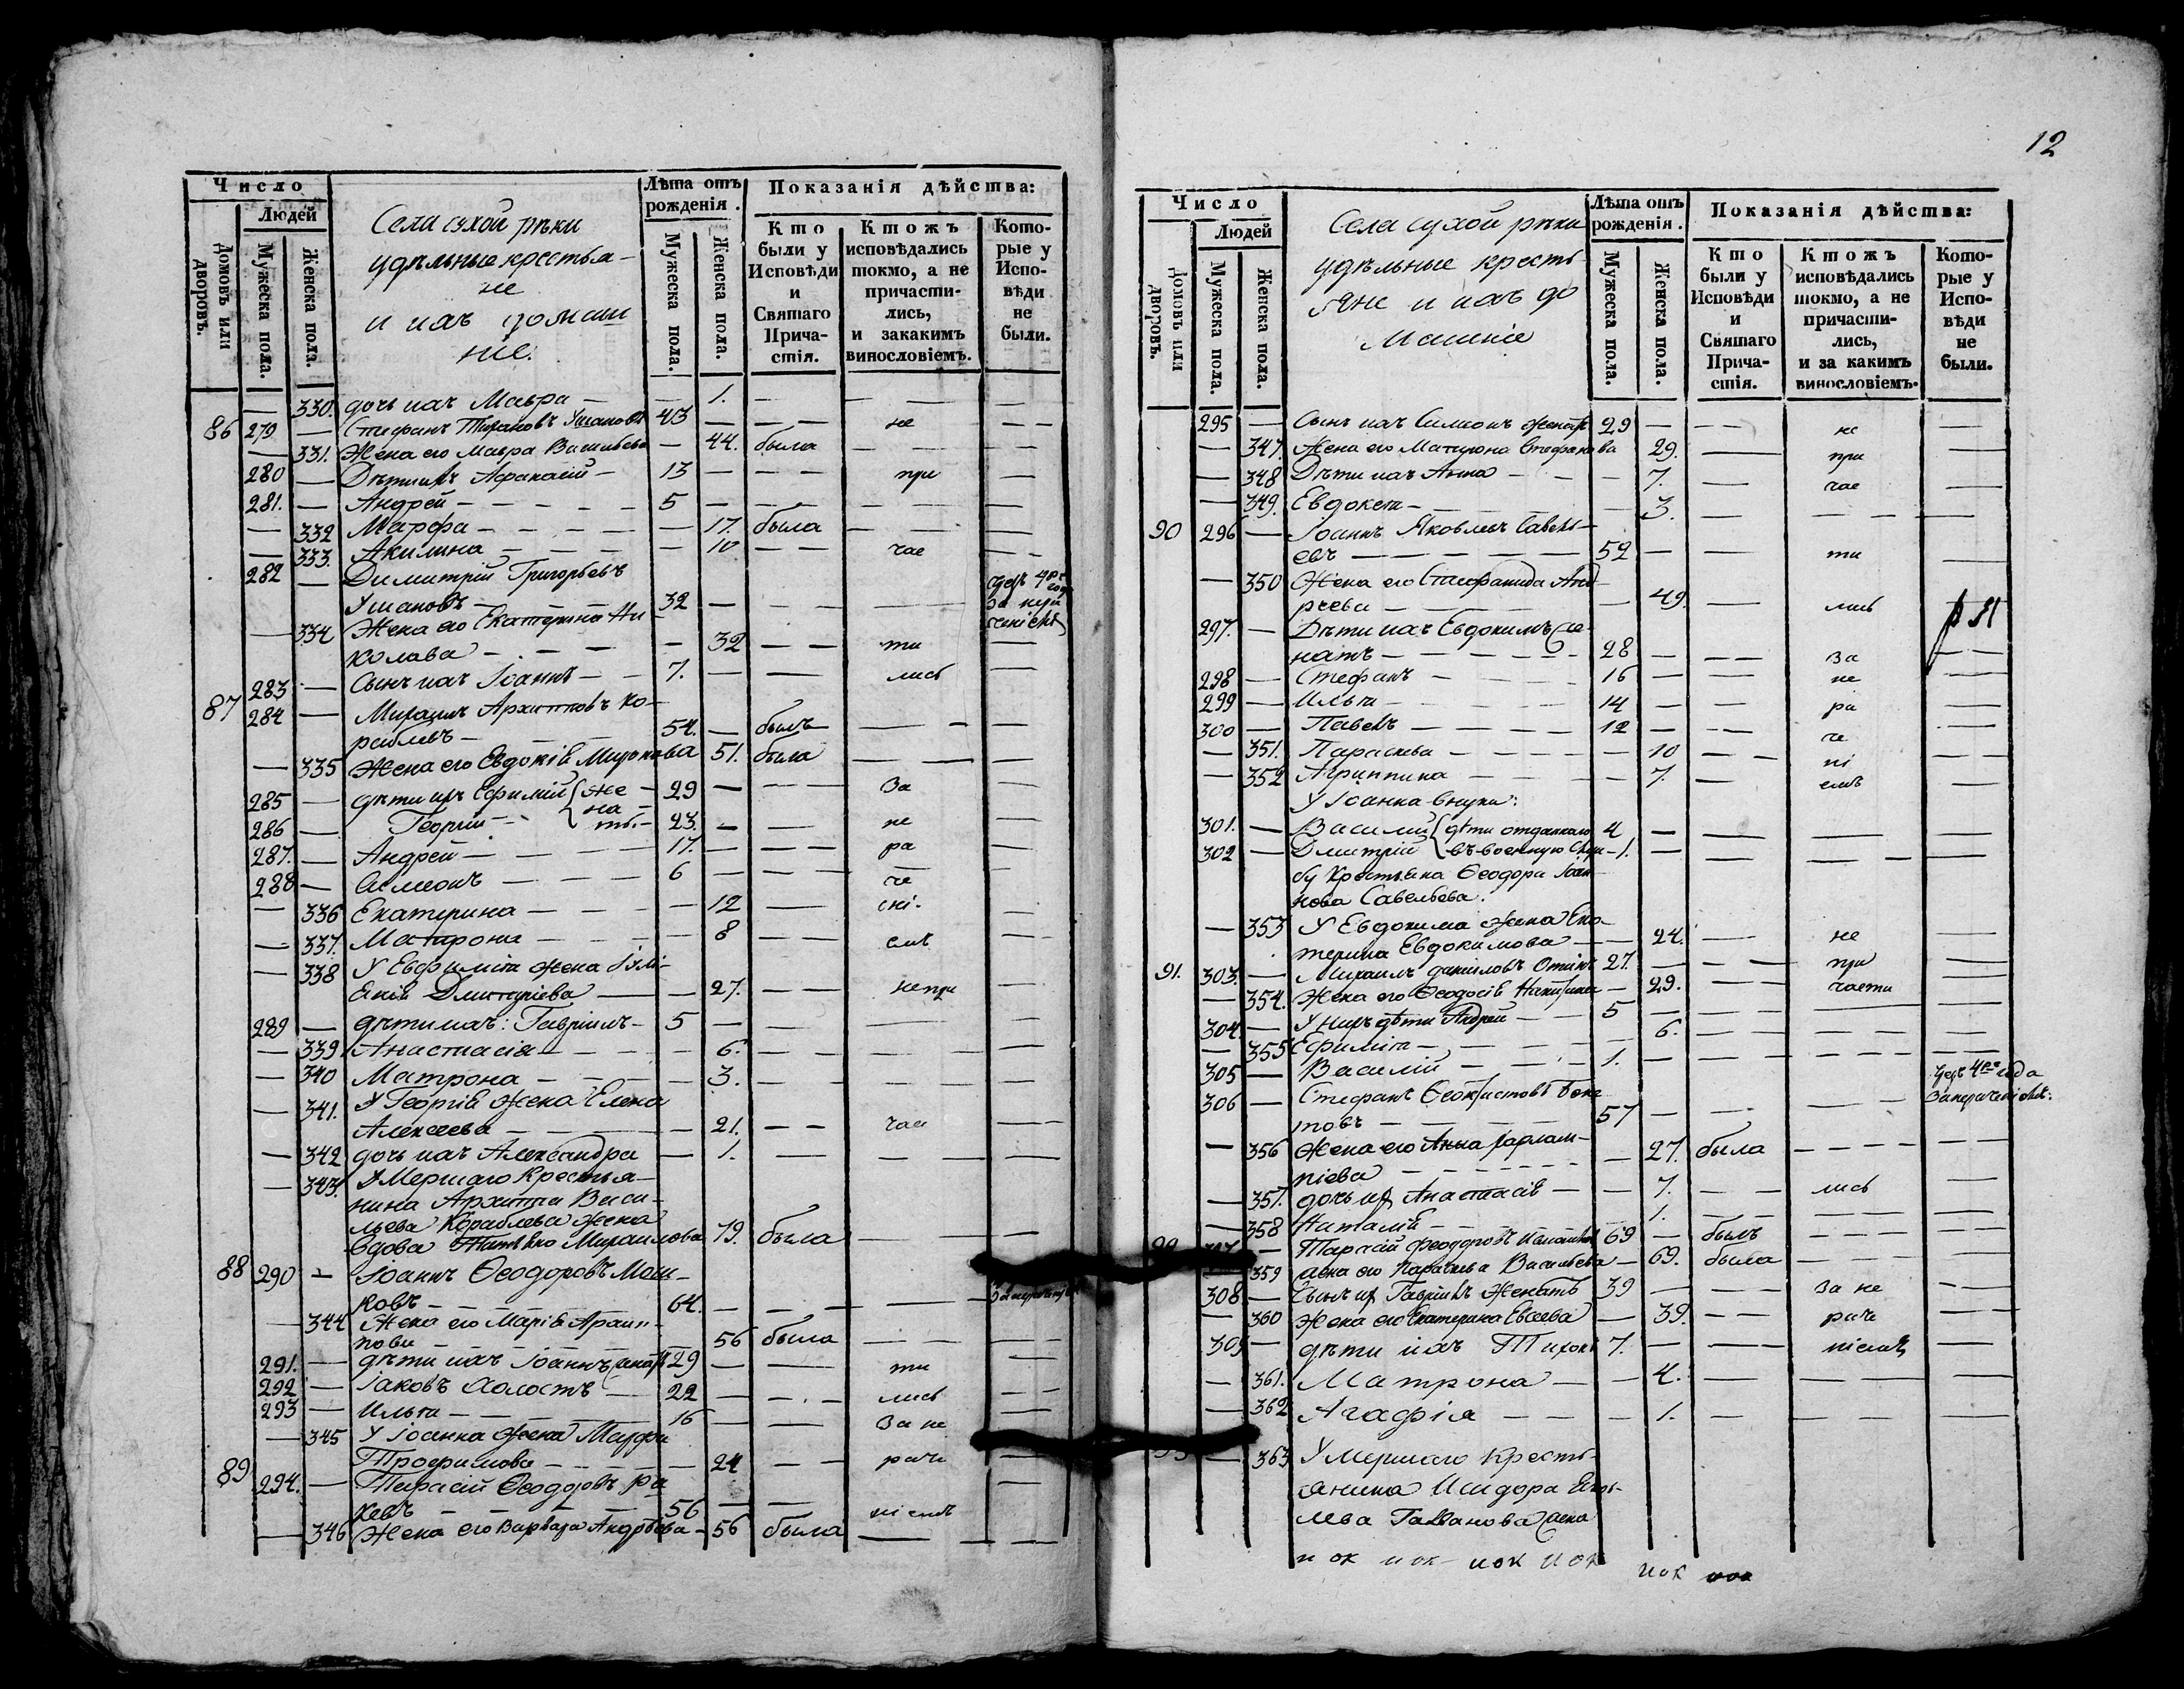 Число
Людей
Домовъ или дворовъ.
Мужеска пола.
Женска пола.
Села сухой рѣки
удѣльные крестья-
не
и ихъ домаш
ніе.
Лѣта отъ рожденія.
Мужеска пола.
Женска пола.
Показанія дѣйства:
Кто были у Исповѣди и Святаго Прича-стія.
Ктожъ исповѣдались токмо, а не причасти-лись, и закакимъ винословіемъ.
Кото-рые у Испо-вѣди не были.
— 330. дочь ихъ Мавра — 1. — — —
86 279 — Стефанъ Ушаковъ 43 — — не — —
— 331. Жена его Мавра Васильева — 44. была — —
280 — Дѣти ихъ Афанасій — 13 — — — при —
281. — Андрей — 5 — — — —
— 332 Марфа — — 17. была — — —
— 333. Акилина — — 10 — — чае — —
282 — Димитрій Григорьевъ
Ушаковъ — 32 — — —
— 334 Жена его Екатерина Ни-
колаева — — 32 — — ти —
283 — Сынъ ихъ Іоаннъ — 7. — — лись —
87 284 — Михаилъ Архиповъ Ко-
раблевъ — 54. — былъ — —
— 335 Жена его Евдокія 51. была — —
285 — дѣти ихъ Ефимій { же — 29 — — — За —
286 — Георгій — { на ты — 23. — — не —
287. — Андрей — 17. — — ра —
288 — Симеонъ — 6 — — че —
— 336 Екатерина — — 12 — сні. —
— 337. Матрона — — 8 — — емъ —
— 338 У Евфимія жена
Дмитріева — — 27. — — непри —
289 — дѣти ихъ: Гавріилъ — 5 — — — —
— 339 Анастасія — — 6. — — — —
— 340 Матрона — — 3. — — — —
— 341. У Георгія Жена Елена
Алексеева — — 21. — — чае — —
— 342 дочь ихъ Александра — 1. — — — —
— 343. Умершаго Крестья-
нина Архиппа Васи-
льева Кораблева жена
вдова Михаилова 79. была — —
88 290 — Іоаннъ Ѳеодоровъ Маш-
ковъ — 64. — — —
— 344 Жена его Марія
пова 56 была — — —
291. — дѣти ихъ Іоаннъ женатъ 29 — — ти —
292 — Іаковъ холостъ — 22 — — лись — —
293 — Илья — 16 — — За не —
— 345 У Іоанна жена Марфа
Трофимова — — 24 — — раче —
89 294. — Тарасій Ѳеодоровъ Ра
— 56 — — ніемъ —
— 346 Жена его Варвара Андреева — 56 была — — —
12
Число
Людей
Домовъ или дворовъ.
Мужеска пола.
Женска пола.
Села сухой рѣки
удѣльные кресть-
яне и ихъ до
машніе
Лѣта отъ рожденія.
Мужеска пола.
Женска пола.
Показанія дѣйства:
Кто были у Исповѣди и Святаго Прича-стія.
Ктожъ исповѣдались токмо, а не причасти-лись, и за какимъ винословіемъ.
Кото-рые у Испо-вѣди не были.
295 — Сынъ ихъ Симеонъ женатъ 29 — — — не —
— 347. Жена его Матрона Стефанова 29. — при —
— 348 Дѣти ихъ Анна — — 7. — чае —
— 349. Евдокея — 3. — — —
90 296 — Іоаннъ Яковлевъ Савель-
евъ — 52 — — ти —
— 350 Жена его Стефанида Анд-
реева — — 49. — лись
297. — Дѣти ихъ Евдокимъ же-
натъ — 28 — — — За — —
298 — Стефанъ — 16 — — не —
299 — Илья — 14 — — ра —
300 — Павелъ — 12 — — че —
— 351. Параскева — — 10 — — ні —
— 352 Агриппина — — 7. — емъ —
У Іоанна внуки:
301. — Василій { дѣти отданнаго 4 — — — —
302 — Дмитрій { въ военную служ — 1. — — — — —
бу Крестьяна Ѳеодора Іоан-
нова Савельева.
— 353 У Евдокима жена Ека-
терина Евдокимова — — 24. — не —
91. 303. — Михаилъ даниловъ 27. — — при —
— 354. Жена его Ѳеодосія — 29. — — части —
304. — У нихъ дѣти Андрей — 5 — — — —
— 355 Ефимія — 6. — — —
305 — Василій — 1. — — — —
306 — Стефанъ
товъ — 57 — — —
— 356 Жена его Анна Харлам-
піева — — 27. была — — —
— 357. дочь их Анастасія — — 7. — — лись —
— 358 Наталія — — 1. — — — —
— Тарасій Феодоровъ 69 — былъ — — —
359 жена его Параскева Васильева — 69. была — —
308 — Сынъ их Гавріилъ Женатъ 39 — — За не — —
360 Жена его Екатерина Евсеева — 39. — — раче —
309 — дѣти ихъ Тихонъ 7. — — ніемъ —
— 361. Матрона — — 4. — — —
— 362 Агафія — — 1. — — —
— 363 Умершаго Кресть-
янина Исидора Яков-
лева жена